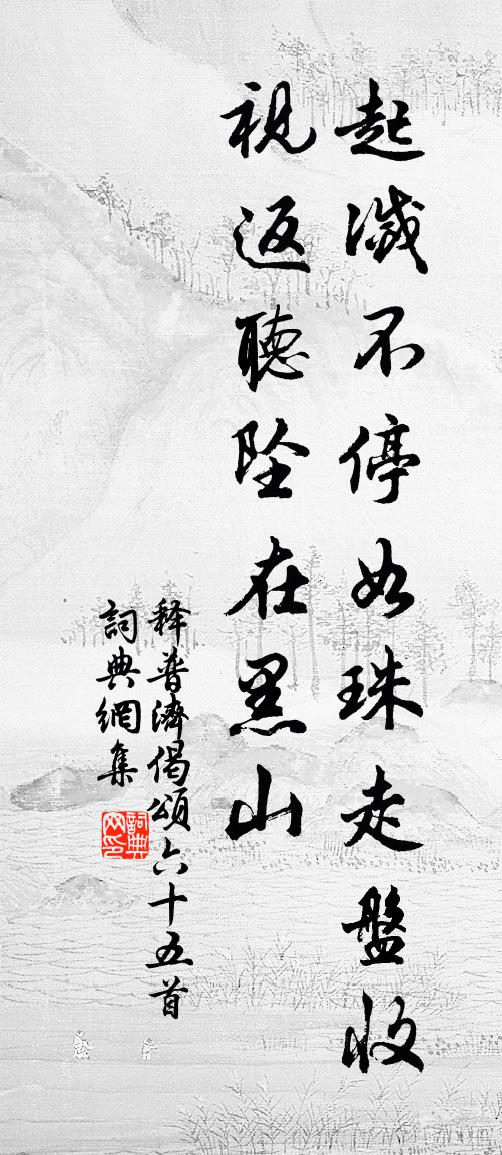 起滅不停如珠走盤收
視返聽坠在黑山
释普濟偈頌六十五首
詞典網集
詞典網印